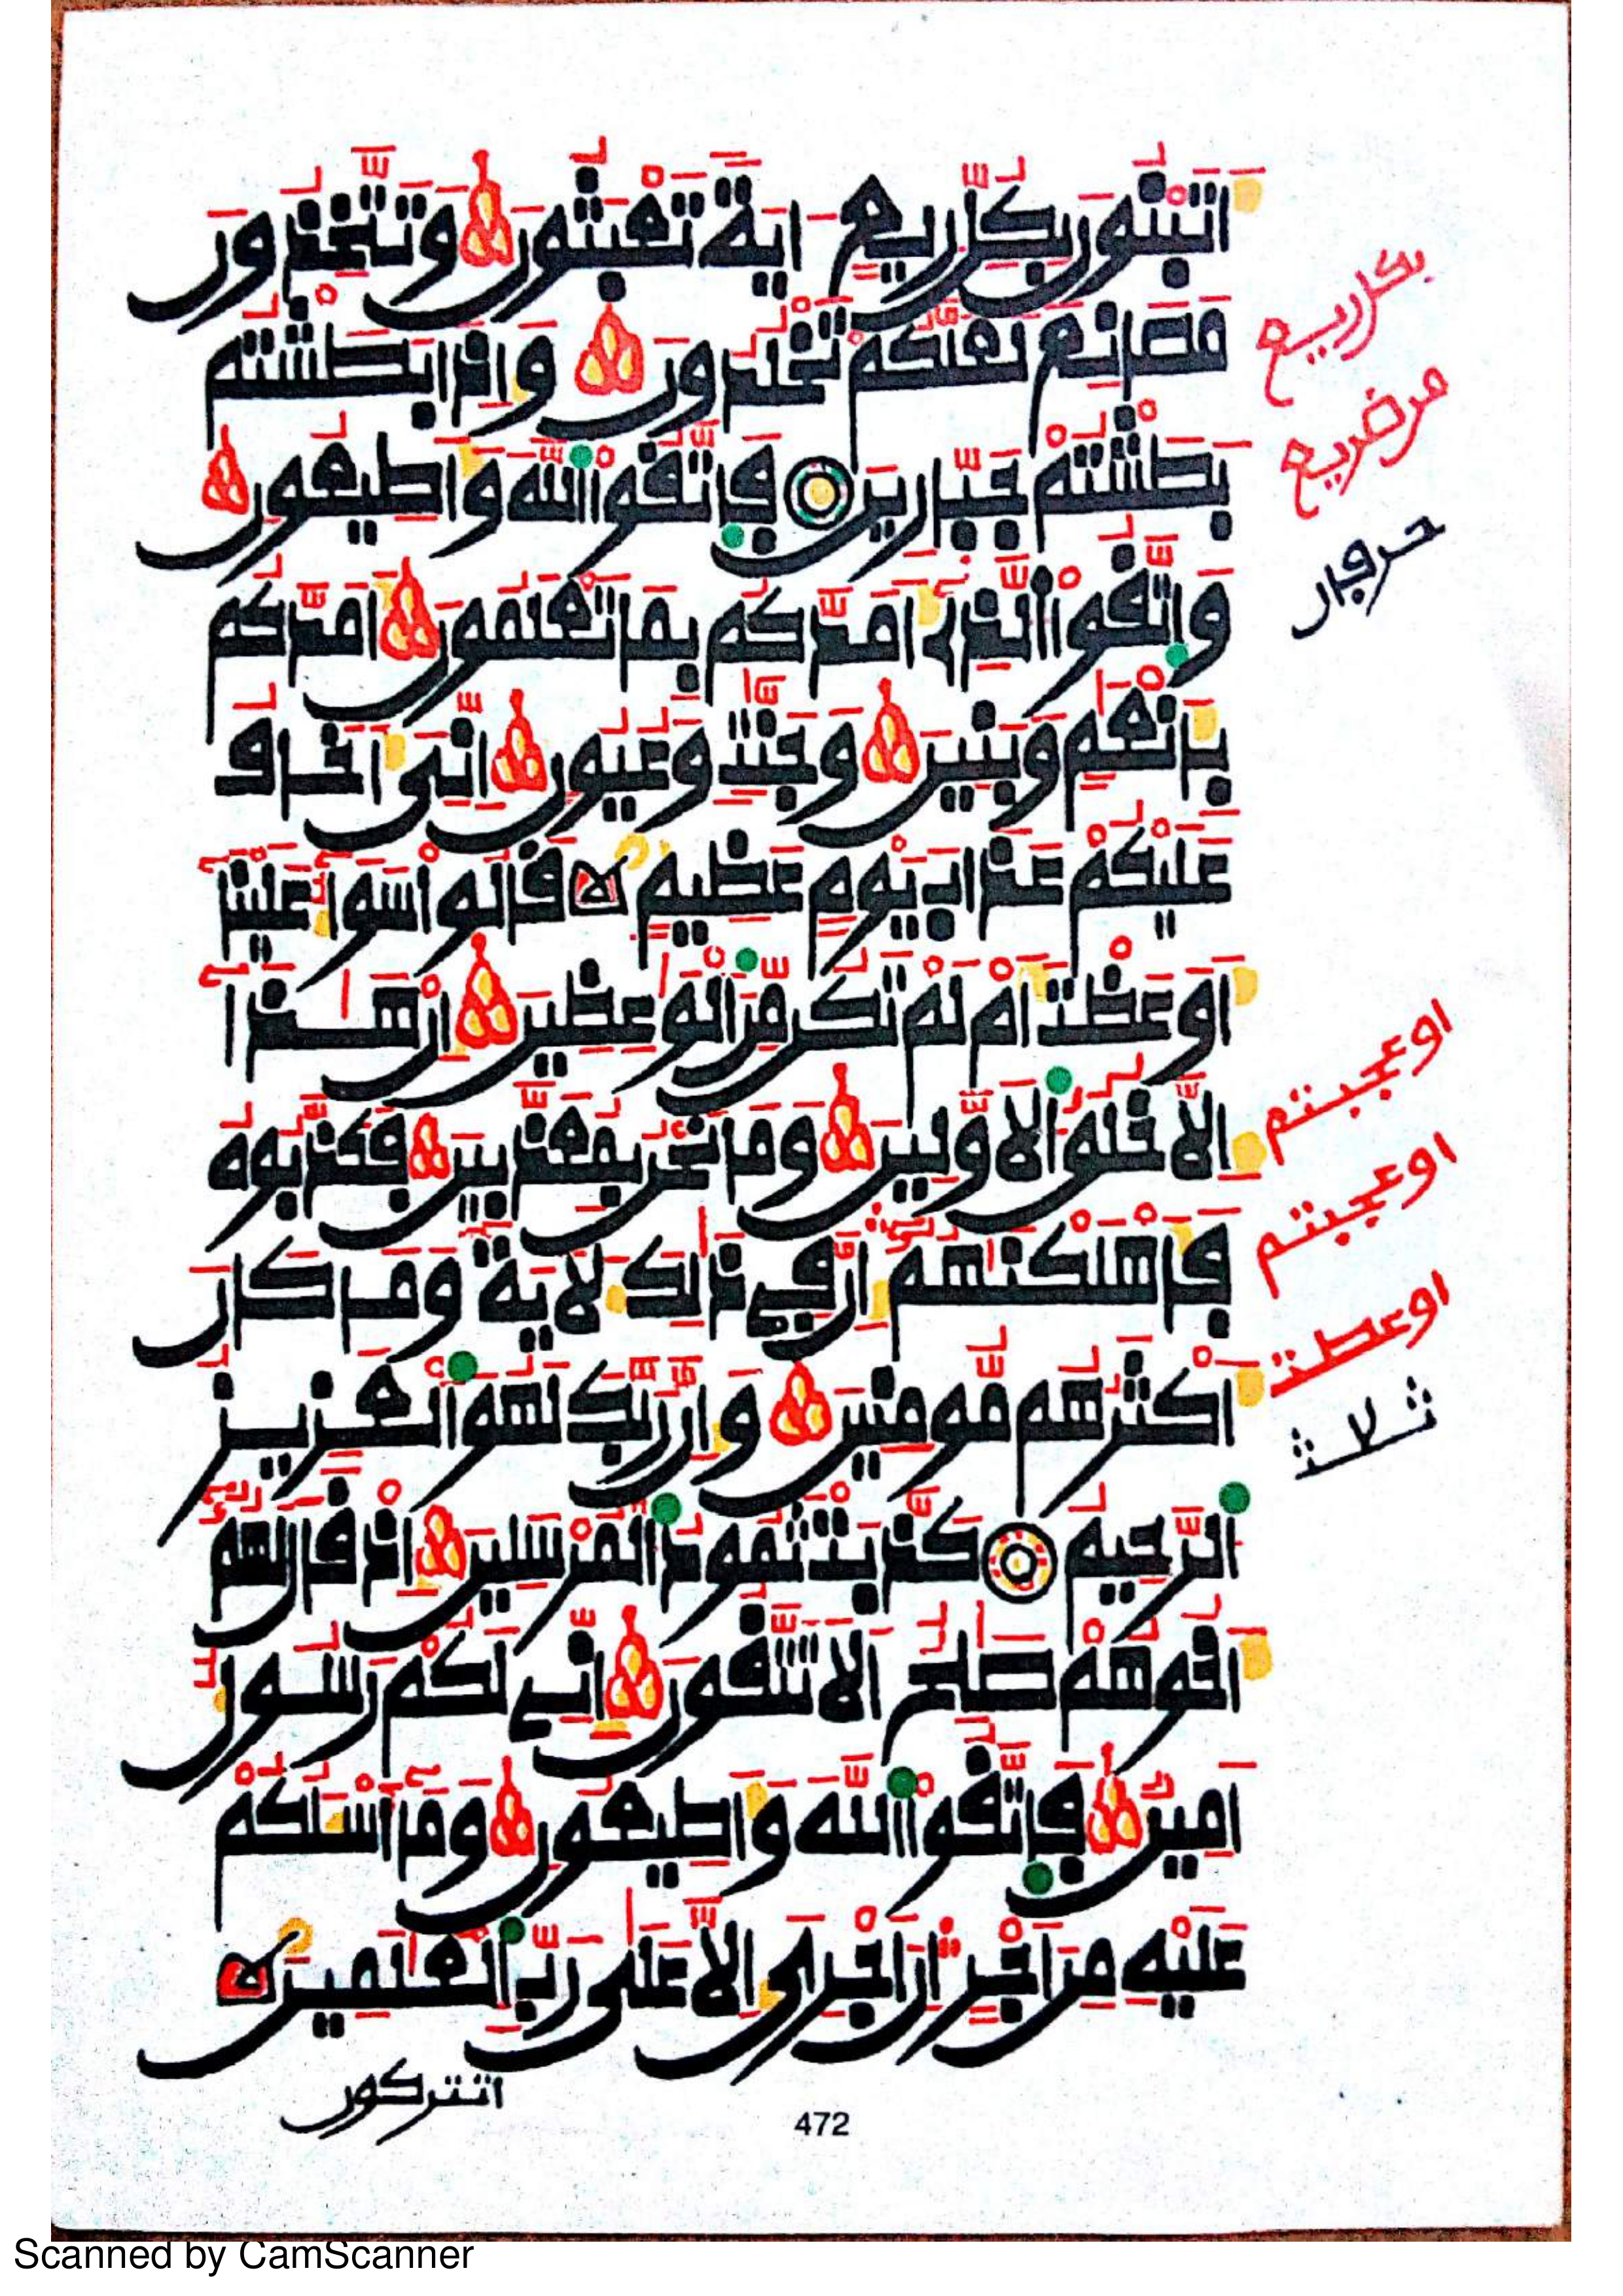 اتبنون بكل ريع اية تعبثون وتتخذون
مصانع لعلكم تخلدون واذا بطشتم
بطشتم جبارين فاتقوا الله واطيعون
واتقوا الذي امدكم بما تعلمون امدكم
بانعم وبنين وجنت وعيون اني اخاف
عليكم عذاب يوم عظيم قالوا سوا علينا
اوعظت ام لم تكن من الوعظين ان هذا
الا خلق الاولين وما نحن بمعذبين فكذبوه
فاهلكنهم ان في ذلك لاية وما كان
اكثرهم مومنين وان ربك لهو العزيز
الرحيم كذبت ثمود المرسلين اذ قال لهم
اخوهم صلح الا تتقون اني لكم رسول
امين فاتقوا الله واطيعون وما اسلكم
عليه من اجر ان اجري الا على رب العلمين
اتتركون
472
بكل ريع
حرفان
اوعجبتم
اوعجبتم
اوعظت
Scanned by CamScanner